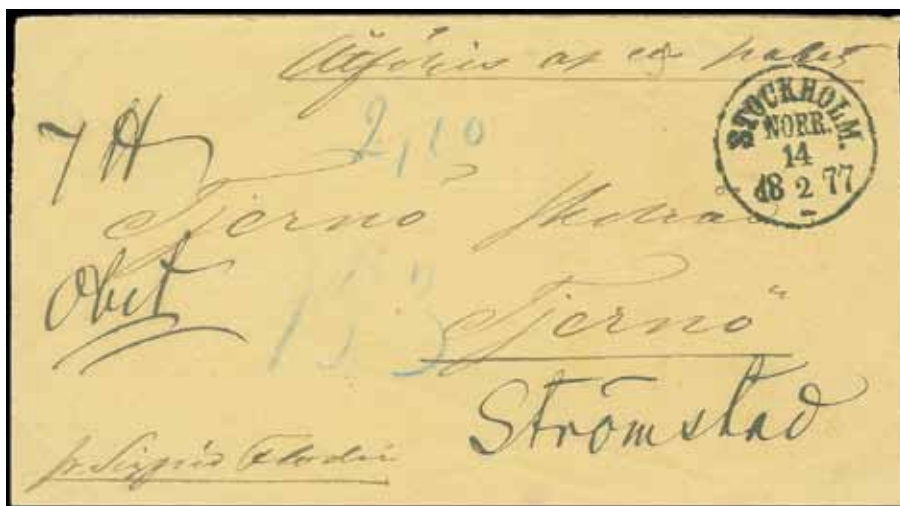 Åtföljes af ett paket
STOCKHOLM.
NORR.
14
18 2 77
2,10
Tjernö Skolråd
Obet
153
Tjernö
Strömstad
pr Sigfrid Flodin